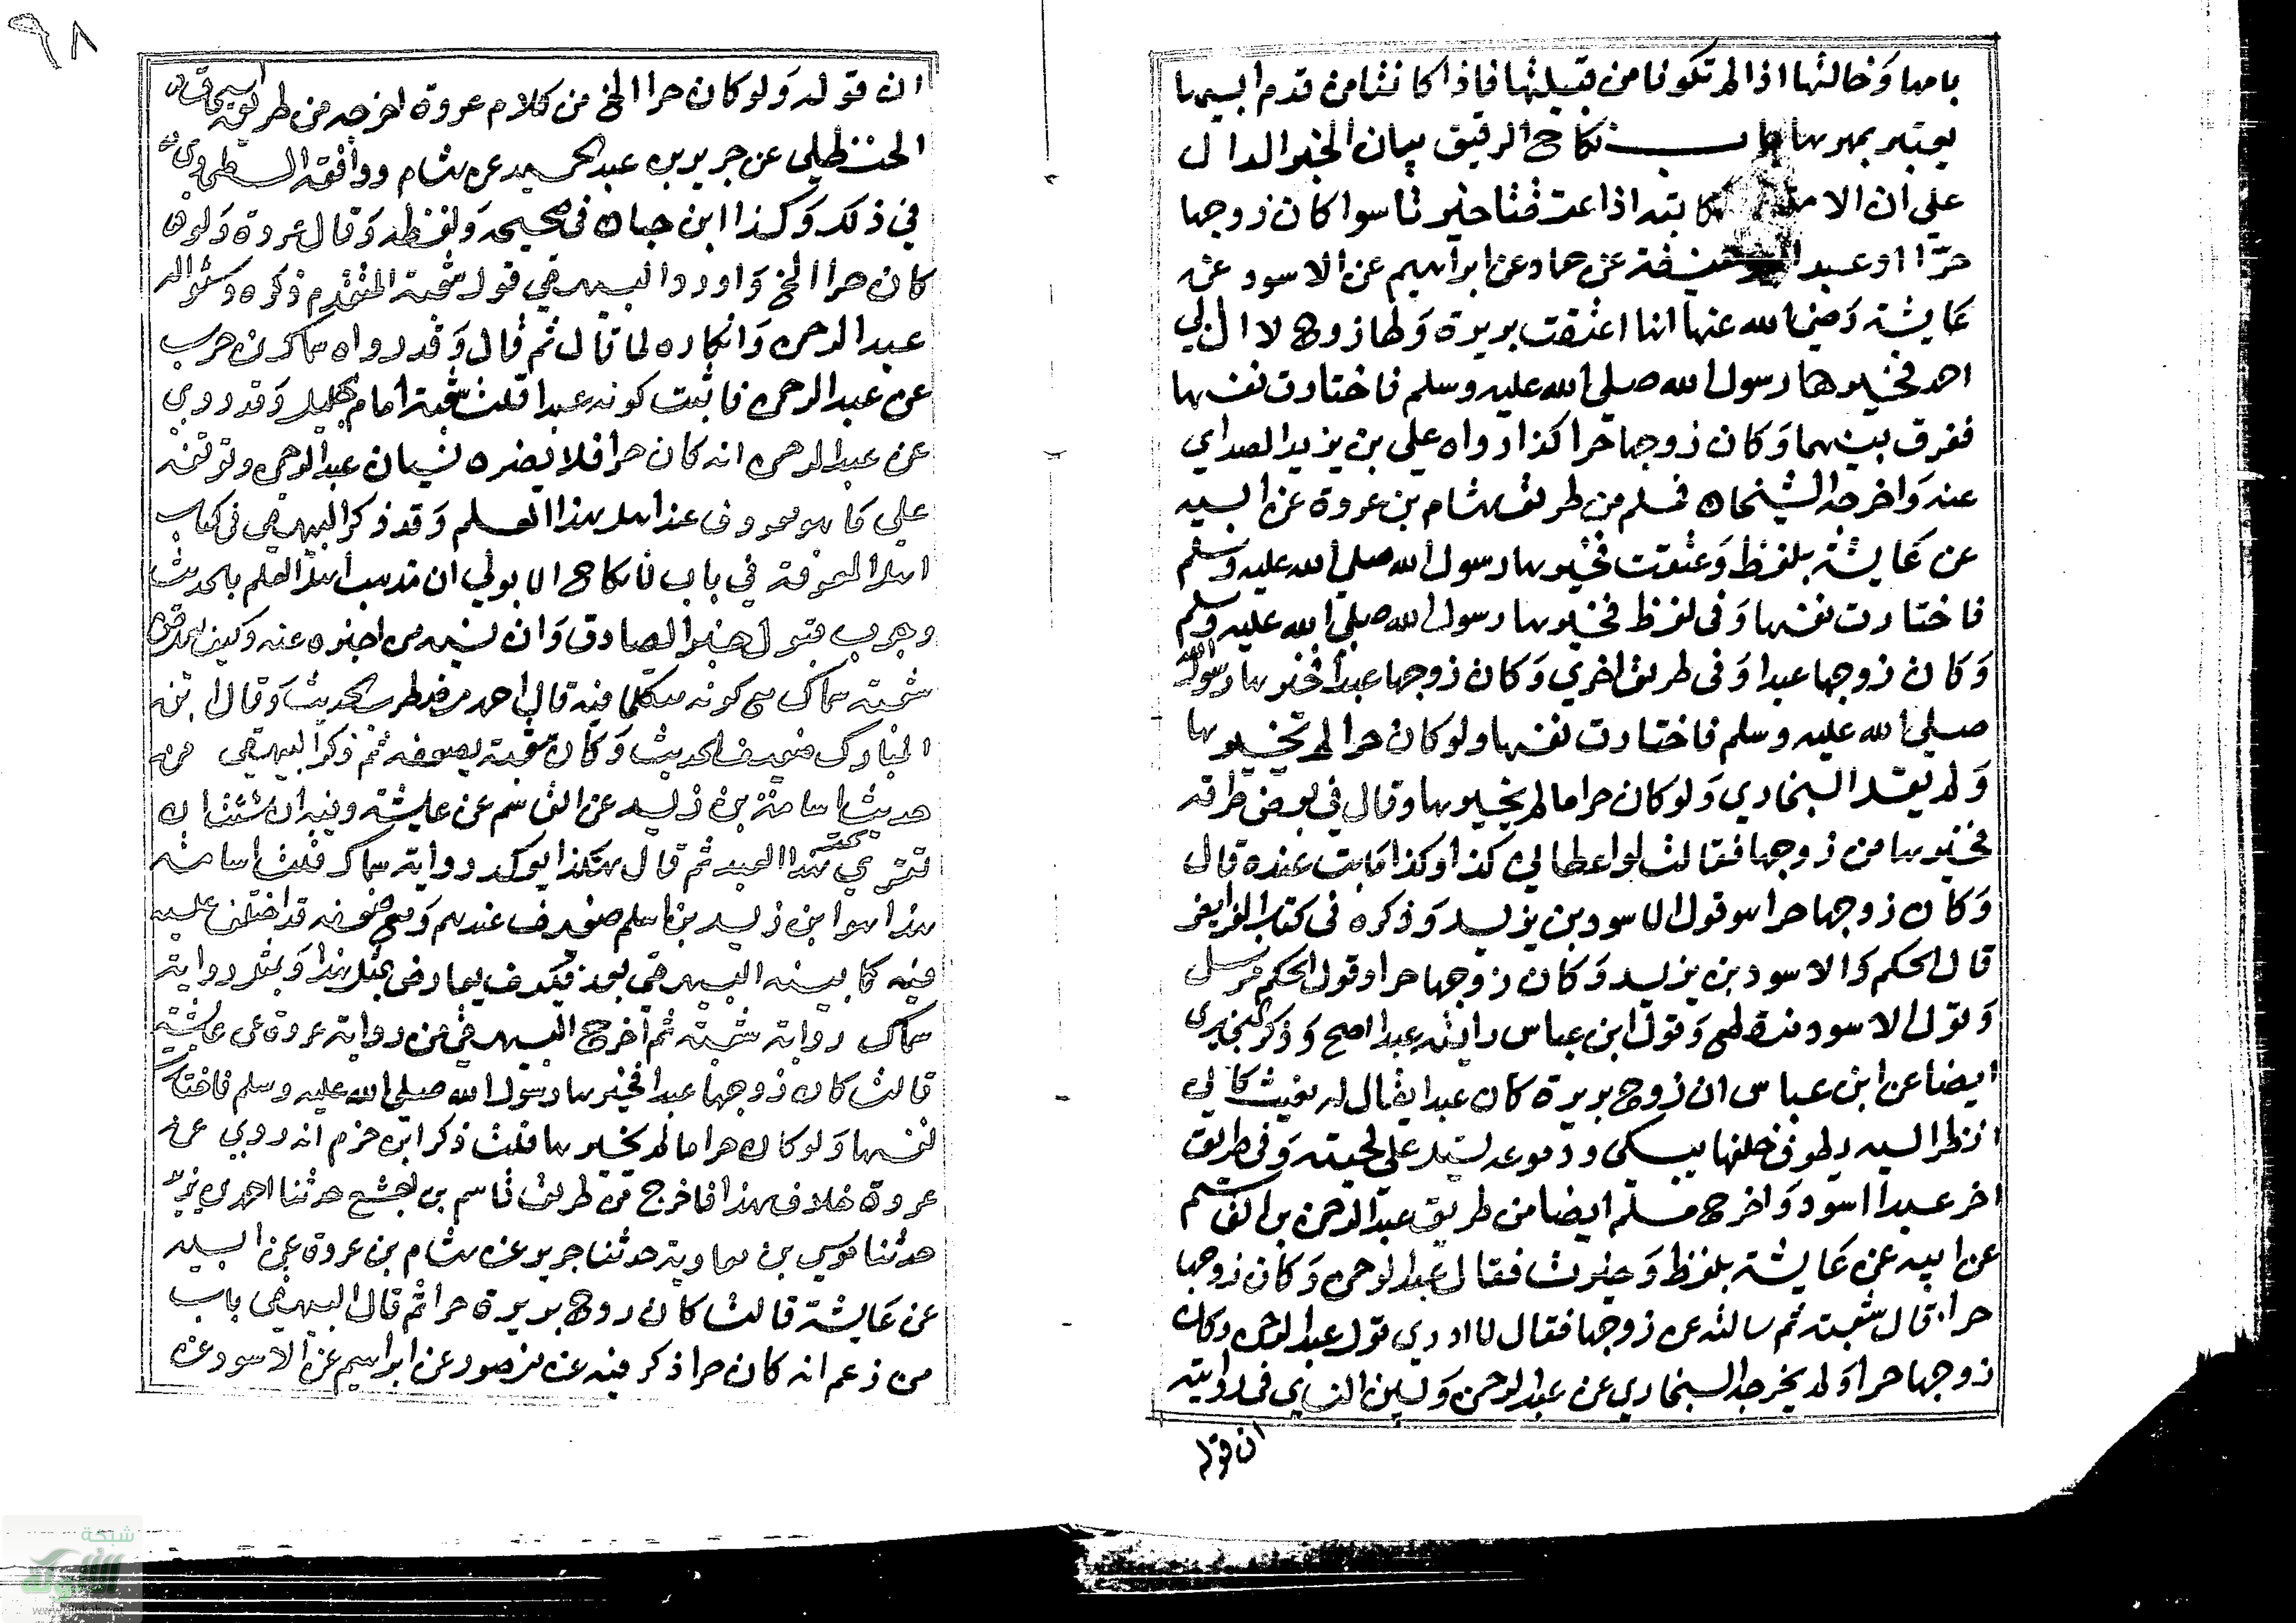 بامها وخالتها اذا لم تكونا من قبيلتها فاذا كانتا من قدم ابيها
يعتبر بمهرها باب نكاح الرقيق بيان الخبر الدال
علي ان الامة كاتبه اذا عتقتا خيرتا سوا كان زوجها
حرّا او عبدا حنيفة عن حماد عن ابراهيم عن الاسود عن
عايشة رضي الله عنها انها اعتقت بريرة ولها زوج لال ابي
احمد فخيرها رسول الله صلي الله عليه وسلم فاختارت نفسها
ففرق بينهما وكان زوجها حرا كذا رواه علي بن يزيد الصداي
عنه واخرجه الشيخان فمسلم من طريق هشام بن عروة عن ابيه
عن عايشة بلفظ وعتقت فخيرها رسول الله صلي الله عليه وسلم
فاختارت نفسها وفي لفظ فخيرها رسول الله صلي الله عليه وسلم
وكان زوجها عبدا وفي طريق اخري وكان زوجها عبدا فخيرها رسول الله
صلي الله عليه وسلم فاختارت نفسها ولو كان حرا لم يخيرها
ولم يقل البخاري ولو كان حرا ما لم يخيرها وقال في بعض طرقه
فخيرها من زوجها فقالت لو اعطاني كذا وكذا ما بت عنده قال
وكان زوجها حرا هو قول الاسود بن يزيد وذكره في كتاب الفرايض
قال الحكم والاسود بن يزيد وكان زوجها حرا وقول الحكم مرسل
وقول الاسود منقطع وقول ابن عباس رايته عبدا اصح وذكر البخاري
ايضا عن ابن عباس ان زوج بريرة كان عبدا يقال له مغيث كاني
انظر اليه يطوف خلفها يبكي ودموعه تسيل علي لحيته وفي طريق
اخر عبدا اسود واخرج مسلم ايضا من طريق عبد الرحمن بن القاسم
عن ابيه عن عايشة بلفظ وخيرت فقال عبد الرحمن وكان زوجها
حرا قال شعبة ثم سالته عن زوجها فقال لا ادري قول عبد الرحمن وكان
زوجها حرا ولم يخرجه البخاري عن عبد الرحمن وبين النساي في روايته
ان قوله
٩٨
ان قوله ولو كان حرا الخ من كلام عروة اخرجه من طريق اسحاق
الحنظلي عن جرير بن عبد الحميد عن هشام ووافقه الطحاوي
في ذلك وكذا ابن حبان في صحيحه ولفظه وقال عروة ولو
كان حرا الخ واورد البيهقي قول شعبة المتقدم ذكره وسؤاله
عبد الرحمن وانكاره لما قال ثم قال وقد رواه سماك بن حرب
عن عبد الرحمن فاثبت كونه عبدا قلت شعبة امام جليل وقد روي
عن عبد الرحمن انه كان حرا فلا يضره نسيان عبد الرحمن وتوقفه
علي ما هو معروف عند اهل هذا العلم وقد ذكر البيهقي في كتاب
المعرفة في باب لا نكاح الا بولي ان مذهب اهل العلم بالحديث
وجوب قبول خبر الصادق وان نسيه من اخبره عنه وكيف يعارض
شعبة سماك مع كونه متكلما فيه قال احمد مضطرب الحديث وقال ابن
المبارك ضعيف الحديث وكان شعبة يضعفه ثم ذكر البيهقي من
حديث اسامة بن زيد عن القاسم عن عايشة وفيه ان شئت ان
تقري تحت هذا العبد ثم قال هكذا يوكد رواية سماك قلت اسامة
هذا هو ابن زيد بن اسلم ضعيف عندهم ومع ضعفه قد اختلف عليه
فيه كما بينه البيهقي بعد فكيف يعارض بمثل هذا وبمثل رواية
سماك رواية شعبة ثم اخرج البيهقي من رواية عروة عن عايشة
قالت كان زوجها عبدا فخيرها رسول الله صلي الله عليه وسلم فاختارت
نفسها ولو كان حرا ما لم يخيرها قلت ذكر ابن حزم انه روي عن
عروة خلاف هذا فاخرج من طريق قاسم بن اصبغ حدثنا احمد بن يزيد
حدثنا موسي بن معاوية حدثنا جرير عن هشام بن عروة عن ابيه
عن عايشة قالت كان زوج بريرة حرا ثم قال البيهقي باب
من زعم انه كان حرا ذكر فيه عن منصور عن ابراهيم عن الاسود عن
شبكة
الألوكة
www.alukah.net